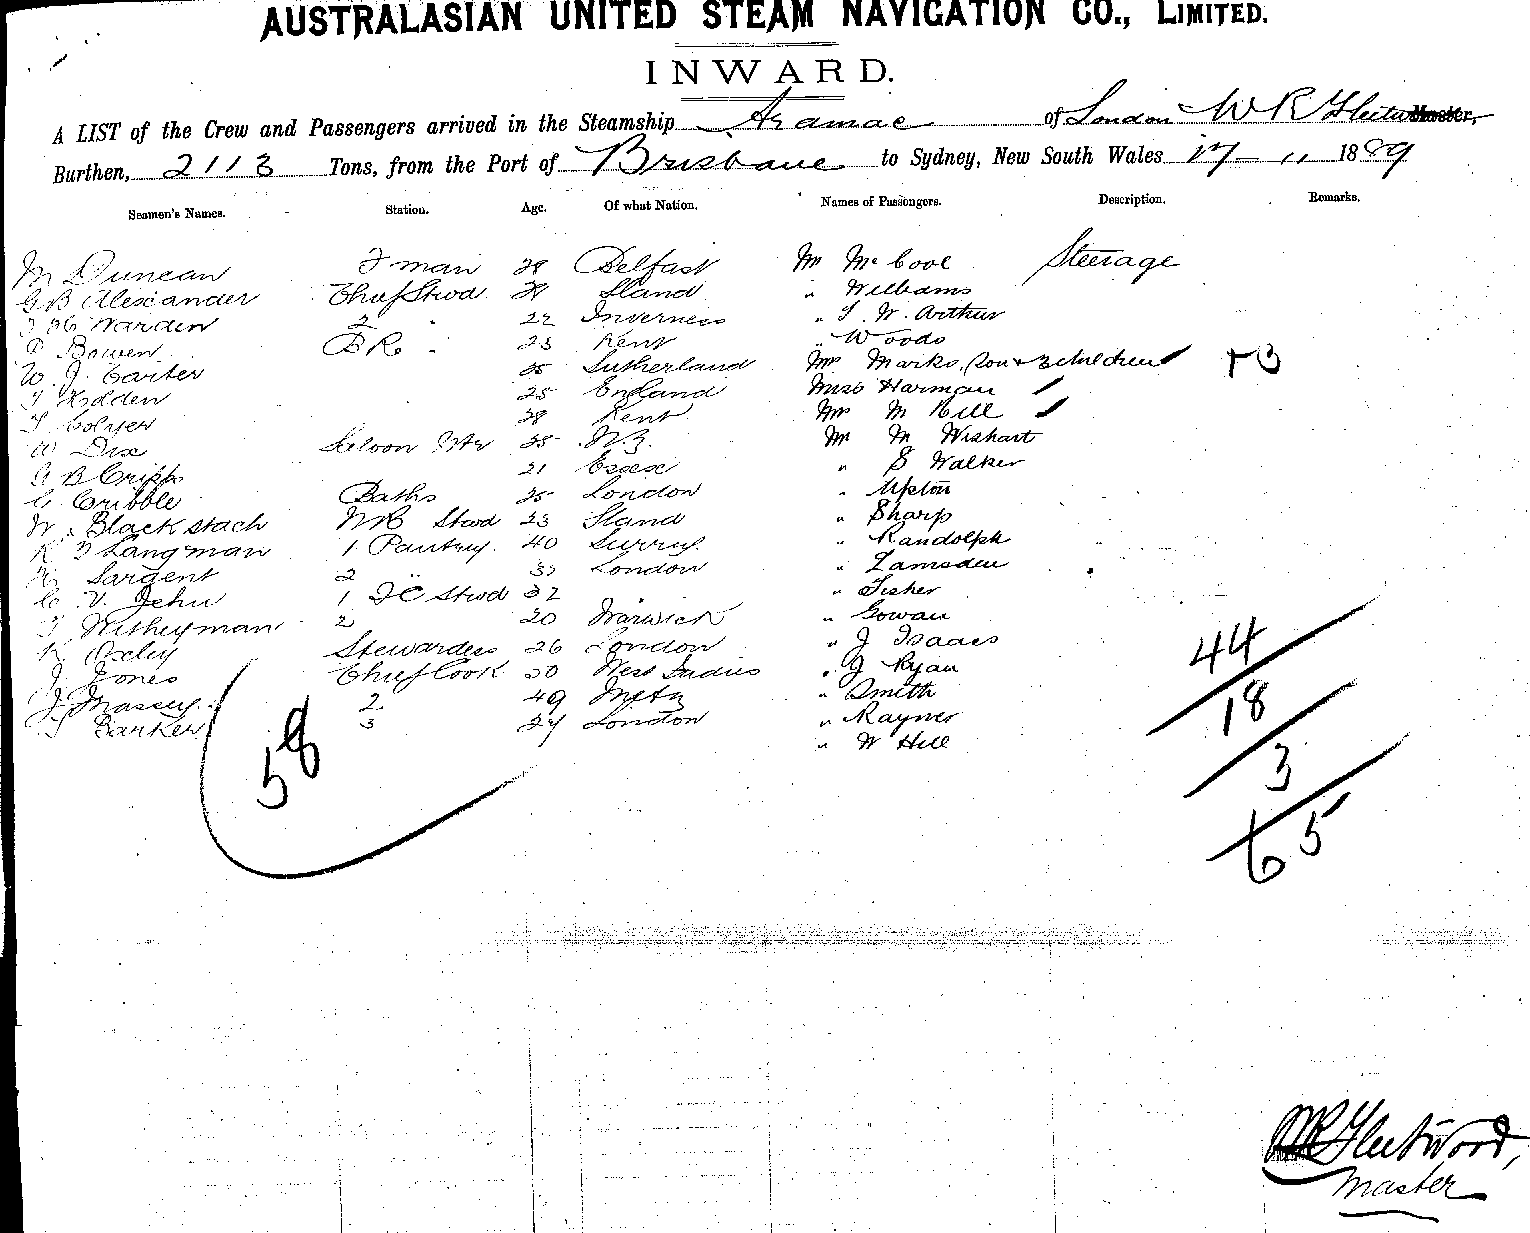 AUSTRALASIAN UNITED STEAM NAVIGATION CO., LIMITED.
INWARD.
A LIST of the Crew and Passengers arrived in the Steamship Aramac of London W R Fleetwood Master,
Burthen, 2113 Tons, from the Port of Brisbane to Sydney, New South Wales 17 - 11 1889
Seamen's Names. Station. Age. Of what Nation. Names of Passengers. Description. Remarks.
M Duncan F man 28 Belfast Mr McCool Steerage
G B Alexander Chief Stwd Sland " Williams
Warden 2 " 22 Inverness " W. Arthur
Bowen B R " 23 Kent " Woods
W. J. Carter 25 Sutherland Mrs Marks, Son & 3 children + 3
Hidden 25 England Miss Harman
Colyer 28 Kent Mrs M Hill
Dix Saloon Wtr 25 N.Z. Mr M Wishart
B Cripps 21 Essex " S Walker
Cribble Baths 25 London " Upton
W. Blackstach Stwd 23 Sland " Sharp
Langman 1 Pantry 40 Surrey " Randolph
Sargent 2 London " Lamsden
C. V. Jehu 1 Stwd 32 " Fisher
Witheyman 2 20 Warwick " Gowan
Oxley Stewardess 26 London " J Isaacs
J Jones Chief Cook 50 West Indies " J Ryan
J Massey 2 49 Metz " Smith
Parker 3 27 London " Rayner
" W Hill
58
44
18
3
65
W R Fleetwood,
Master